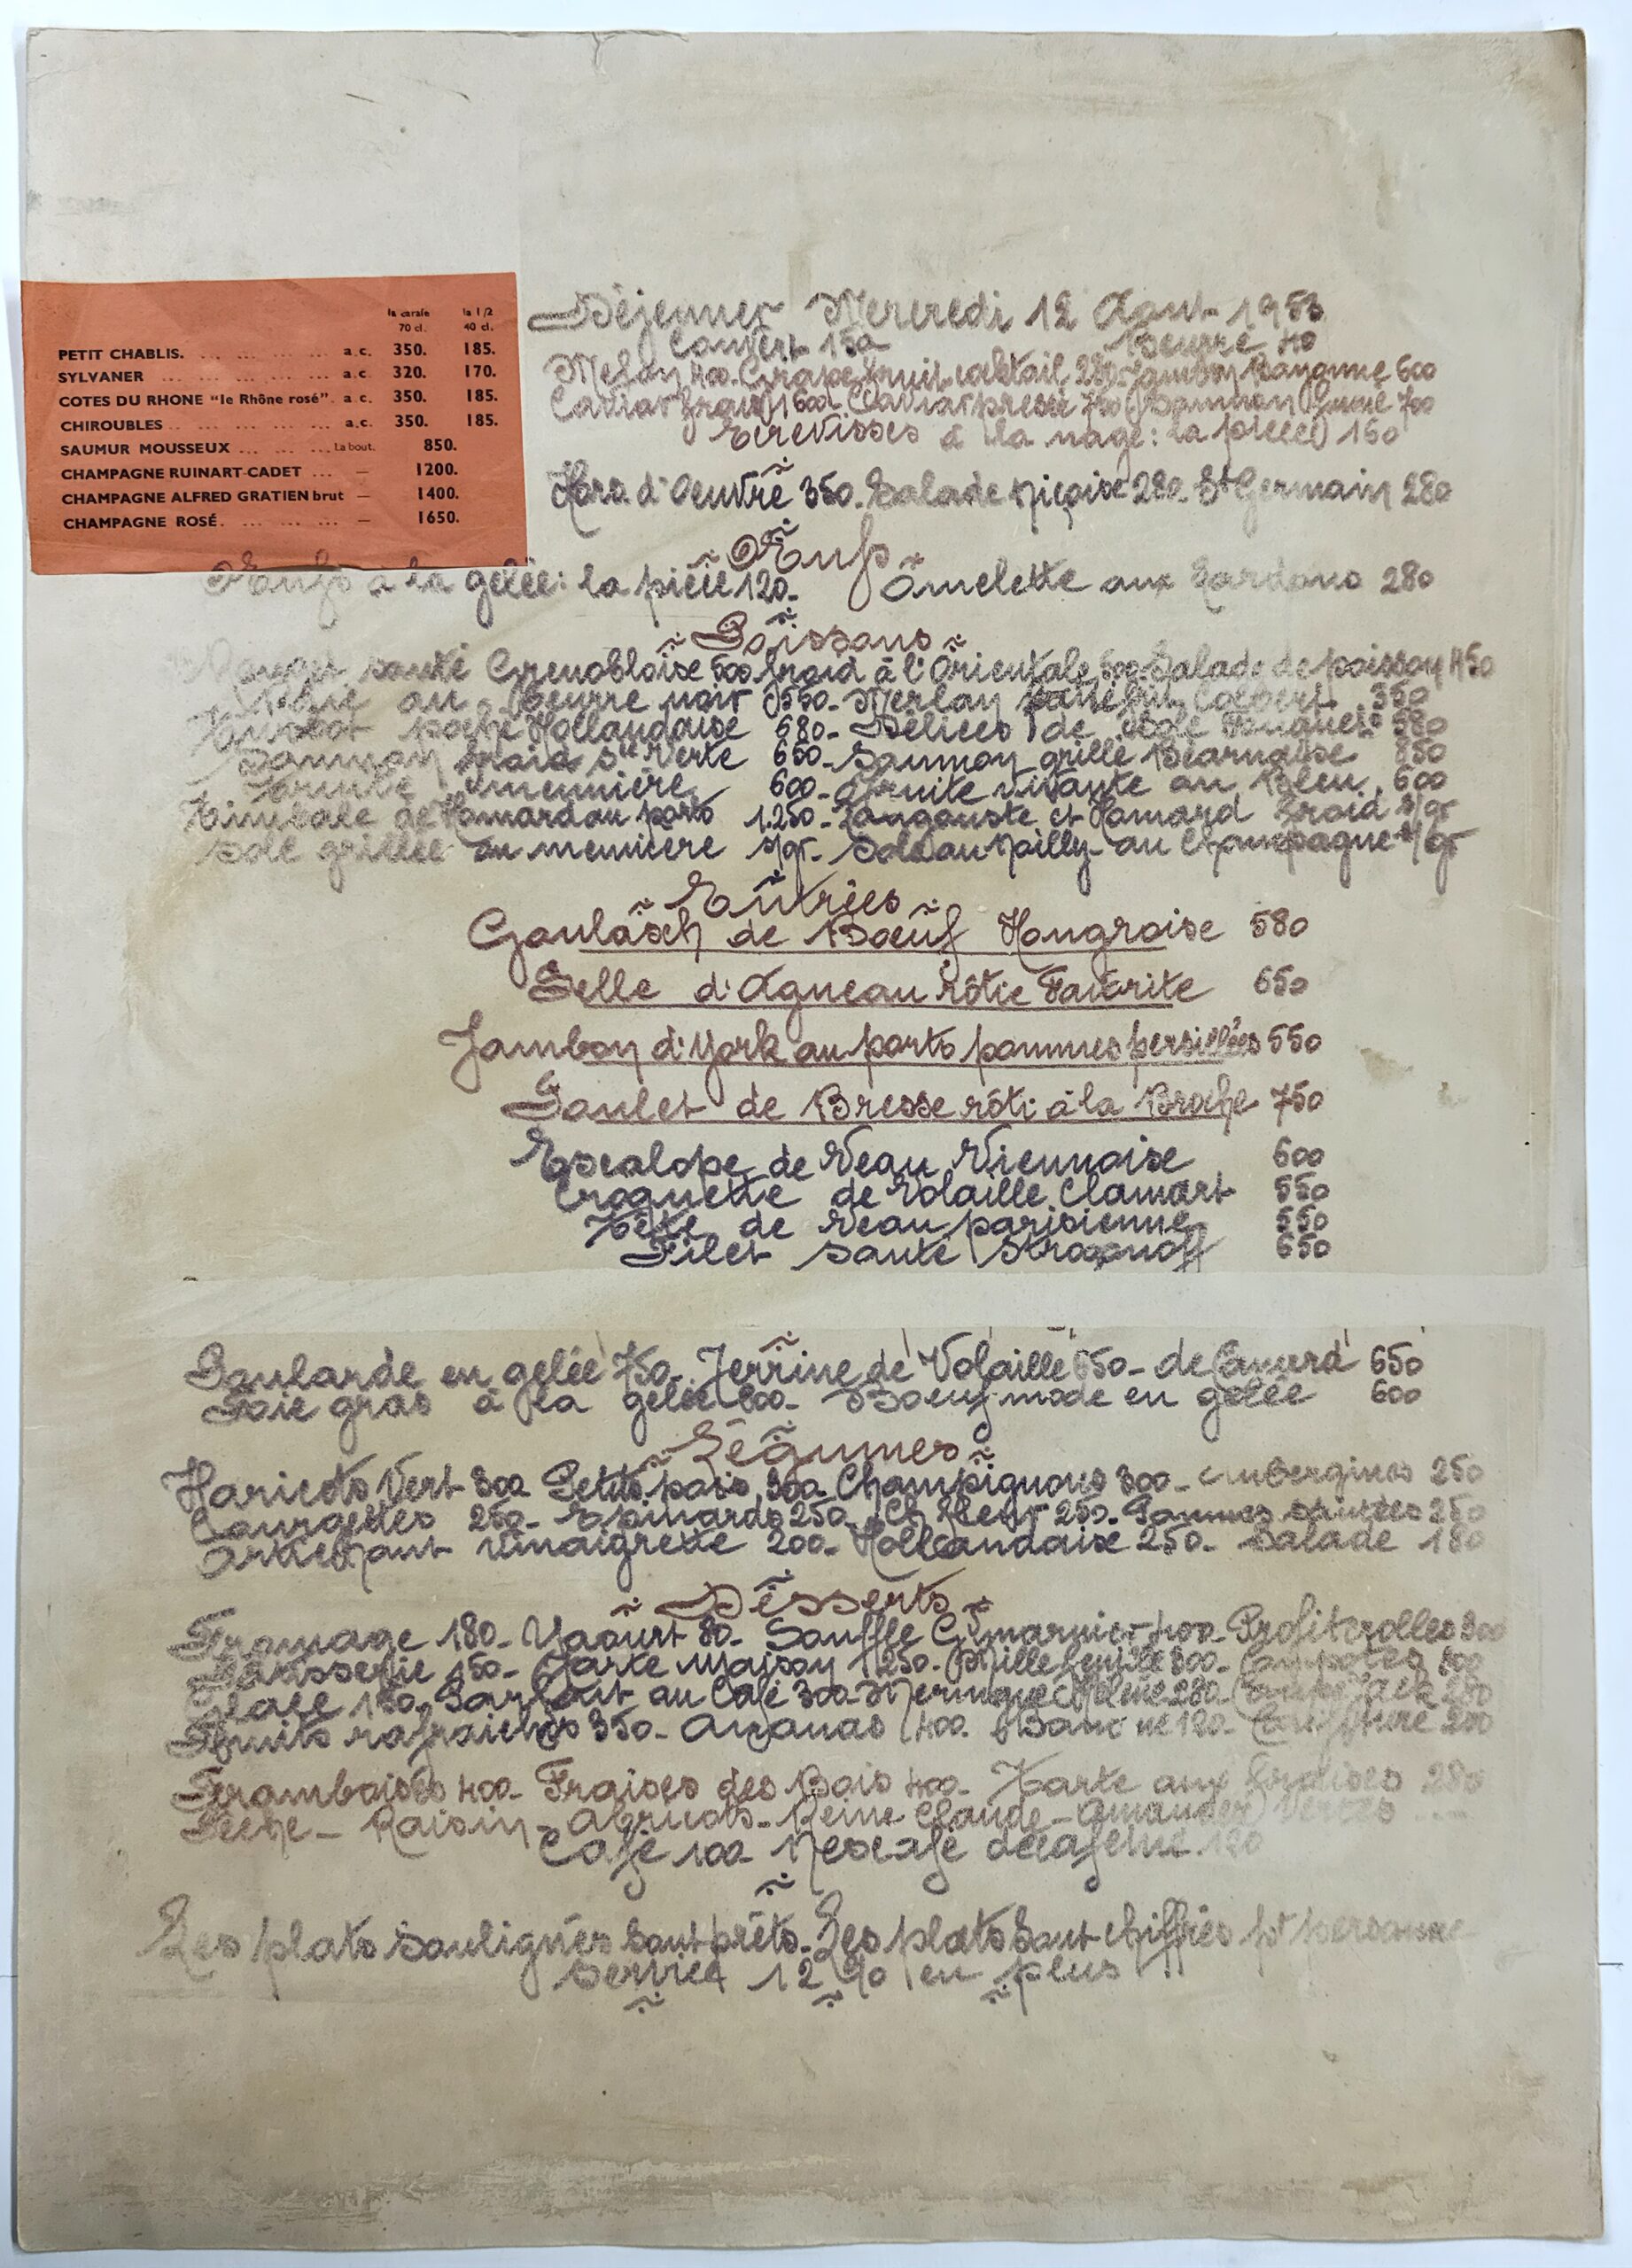 la carafe la 1/2
70 cl. 40 cl.
PETIT CHABLIS. ... ... ... ... a.c. 350. 185.
SYLVANER ... ... ... ... ... a.c. 320. 170.
COTES DU RHONE "le Rhône rosé". a.c. 350. 185.
CHIROUBLES ... ... ... ... a.c. 350. 185.
SAUMUR MOUSSEUX ... ... ... La bout. 850.
CHAMPAGNE RUINART-CADET ... — 1200.
CHAMPAGNE ALFRED GRATIEN brut — 1400.
CHAMPAGNE ROSÉ. ... ... ... — 1650.
Déjeuner Mercredi 12 Août 1953
Couvert 150 Beurre 40
Melon 400. Grape fruit cocktail 280. Jambon Bayonne 600
Caviar frais 1600. Caviar pressé 750 Saumon fumé 700
Ecrevisses à la nage: la pièce 150
Hors d'Oeuvre 350. Salade niçoise 280. St Germain 280
Oeufs
Oeufs à la gelée: la pièce 120. Omelette aux lardons 280
Poissons
Rouget sauté Grenobloise 500. froid à l'Orientale 500. Salade de poisson 450
Raie au Beurre noir 350. Merlan frit Colbert 350
Turbot poché Hollandaise 680. Délices de sole 580
Saumon froid sce Verte 650. Saumon grillé Béarnaise 850
Truite meunière 600. Truite vivante au Bleu 600
Timbale de Homard au porto 1.250. Langouste et Homard froid s/gr
Sole grillée ou meunière s/gr. Sole au Noilly. au Champagne s/gr
Entrées
Goulasch de Boeuf Hongroise 580
Selle d'Agneau rôtie Favorite 650
Jambon d'York au porto pommes persillées 550
Poulet de Bresse rôti à la Broche 750
Escalope de Veau Viennoise 600
Croquette de Volaille Clamart 550
Tête de Veau parisienne 550
Filet sauté Stroganoff 650
Poularde en gelée 750. Terrine de Volaille 650. de Canard 650
Foie gras à la gelée 800. Boeuf mode en gelée 600
Légumes
Haricots Vert 300. Petits pois 300. Champignons 300. Aubergines 250
Courgettes 250. Epinards 250. Ch. fleur 250. Pommes sautées 250
Artichaut Vinaigrette 200. Hollandaise 250. Salade 180
Desserts
Fromage 180. Yaourt 80. Soufflé Gd marnier 400. Profiterolles 300
Patisserie 150. Tarte Maison 250. Millefeuille 300. Compotes
Glace 180. Parfait au Café 300. Meringue Glacée 280. Coupe Jack 280
Fruits rafraichis 350. Ananas 400. Banane 120. Confiture 200
Framboises 400. Fraises des Bois 400. Tarte aux fraises 280
Pêche - Raisin - Abricots - Reine Claude - Amandes Vertes
Café 100. Nescafé décaféiné 120
Les plats soulignés sont prêts. Les plats sont chiffrés pr personne
Service 12 % en plus